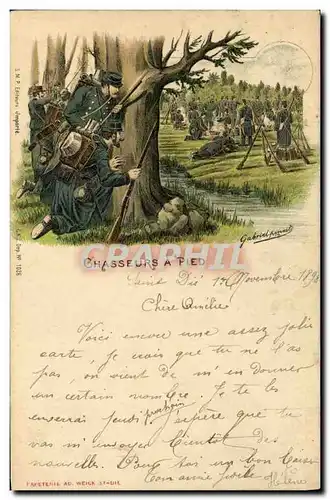 J. M. P. Editeurs. Déposé
Dep. Nº 1026
Gabriel
CHASSEURS A PIED
Saint Dié 17 Novembre 189
Chère Amélie
Voici encore une assez jolie
carte, je crois que tu ne l'as
pas, on vient de m'en donner
un certain nombre. Je te les
enverrai jeudi prochain j'espère que tu
vas m'envoyer bientôt des
nouvelles. Pour toi un bon baiser
Ton amie
Hélène
PAPETERIE AD. WEICK ST-DIÉ